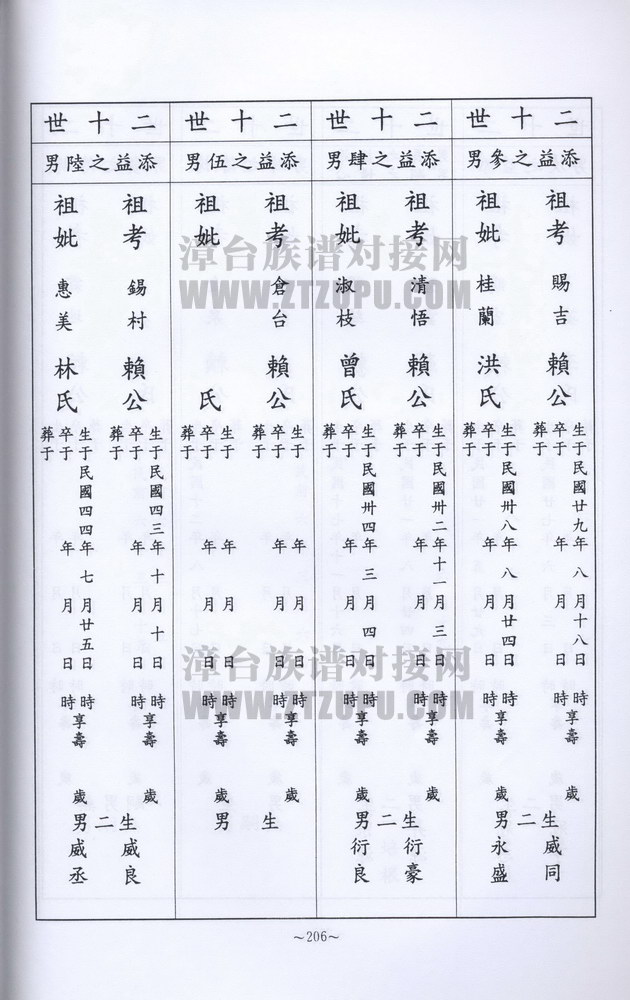 二十世
添益之參男
祖考 賜吉 賴公
生于民國廿九年八月十八日 時享壽 歲
卒于 年 月 日 時
葬于
祖妣 桂蘭 洪氏
生于民國卅八年八月廿四日 時享壽 歲
卒于 年 月 日 時
葬于
生二男
威同
永盛
二十世
添益之肆男
祖考 清悟 賴公
生于民國卅二年十一月三日 時享壽 歲
卒于 年 月 日 時
葬于
祖妣 淑枝 曾氏
生于民國卅四年三月四日 時享壽 歲
卒于 年 月 日 時
葬于
生二男
衍豪
衍良
二十世
添益之伍男
祖考 倉台 賴公
生于 年 月 日 時享壽 歲
卒于 年 月 日 時
葬于
祖妣 氏
生于 年 月 日 時享壽 歲
卒于 年 月 日 時
葬于
生 男
二十世
添益之陸男
祖考 錫村 賴公
生于民國四三年十月十日 時享壽 歲
卒于 年 月 日 時
葬于
祖妣 惠美 林氏
生于民國四四年七月廿五日 時享壽 歲
卒于 年 月 日 時
葬于
生二男
威良
威丞
～206～
漳台族谱对接网
WWW.ZTZUPU.COM
漳台族谱对接网
WWW.ZTZUPU.COM